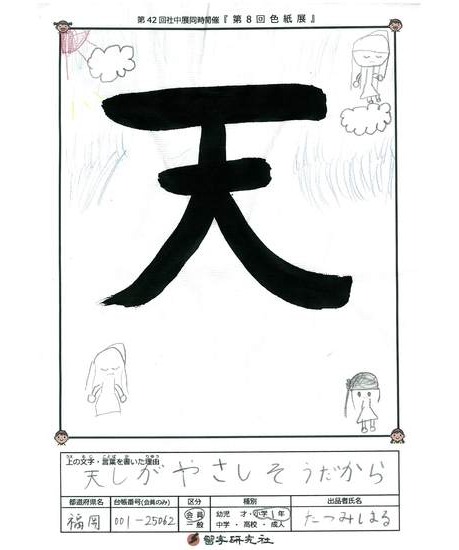 第42回社中展同時開催『第8回色紙展』
天
上の文字・言葉を書いた理由
天しがやさしそうだから
都道府県名 台帳番号(会員のみ) 区分 種別 出品者氏名
福岡 001-25062 会員 一般 幼児 才・小学1年 中学・高校・成人 たつみしまる
書字研究社